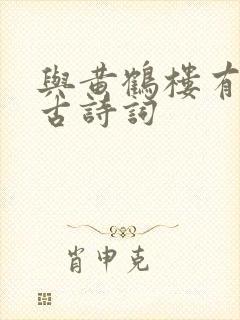 與黃鶴樓有
古詩詞
肖申克